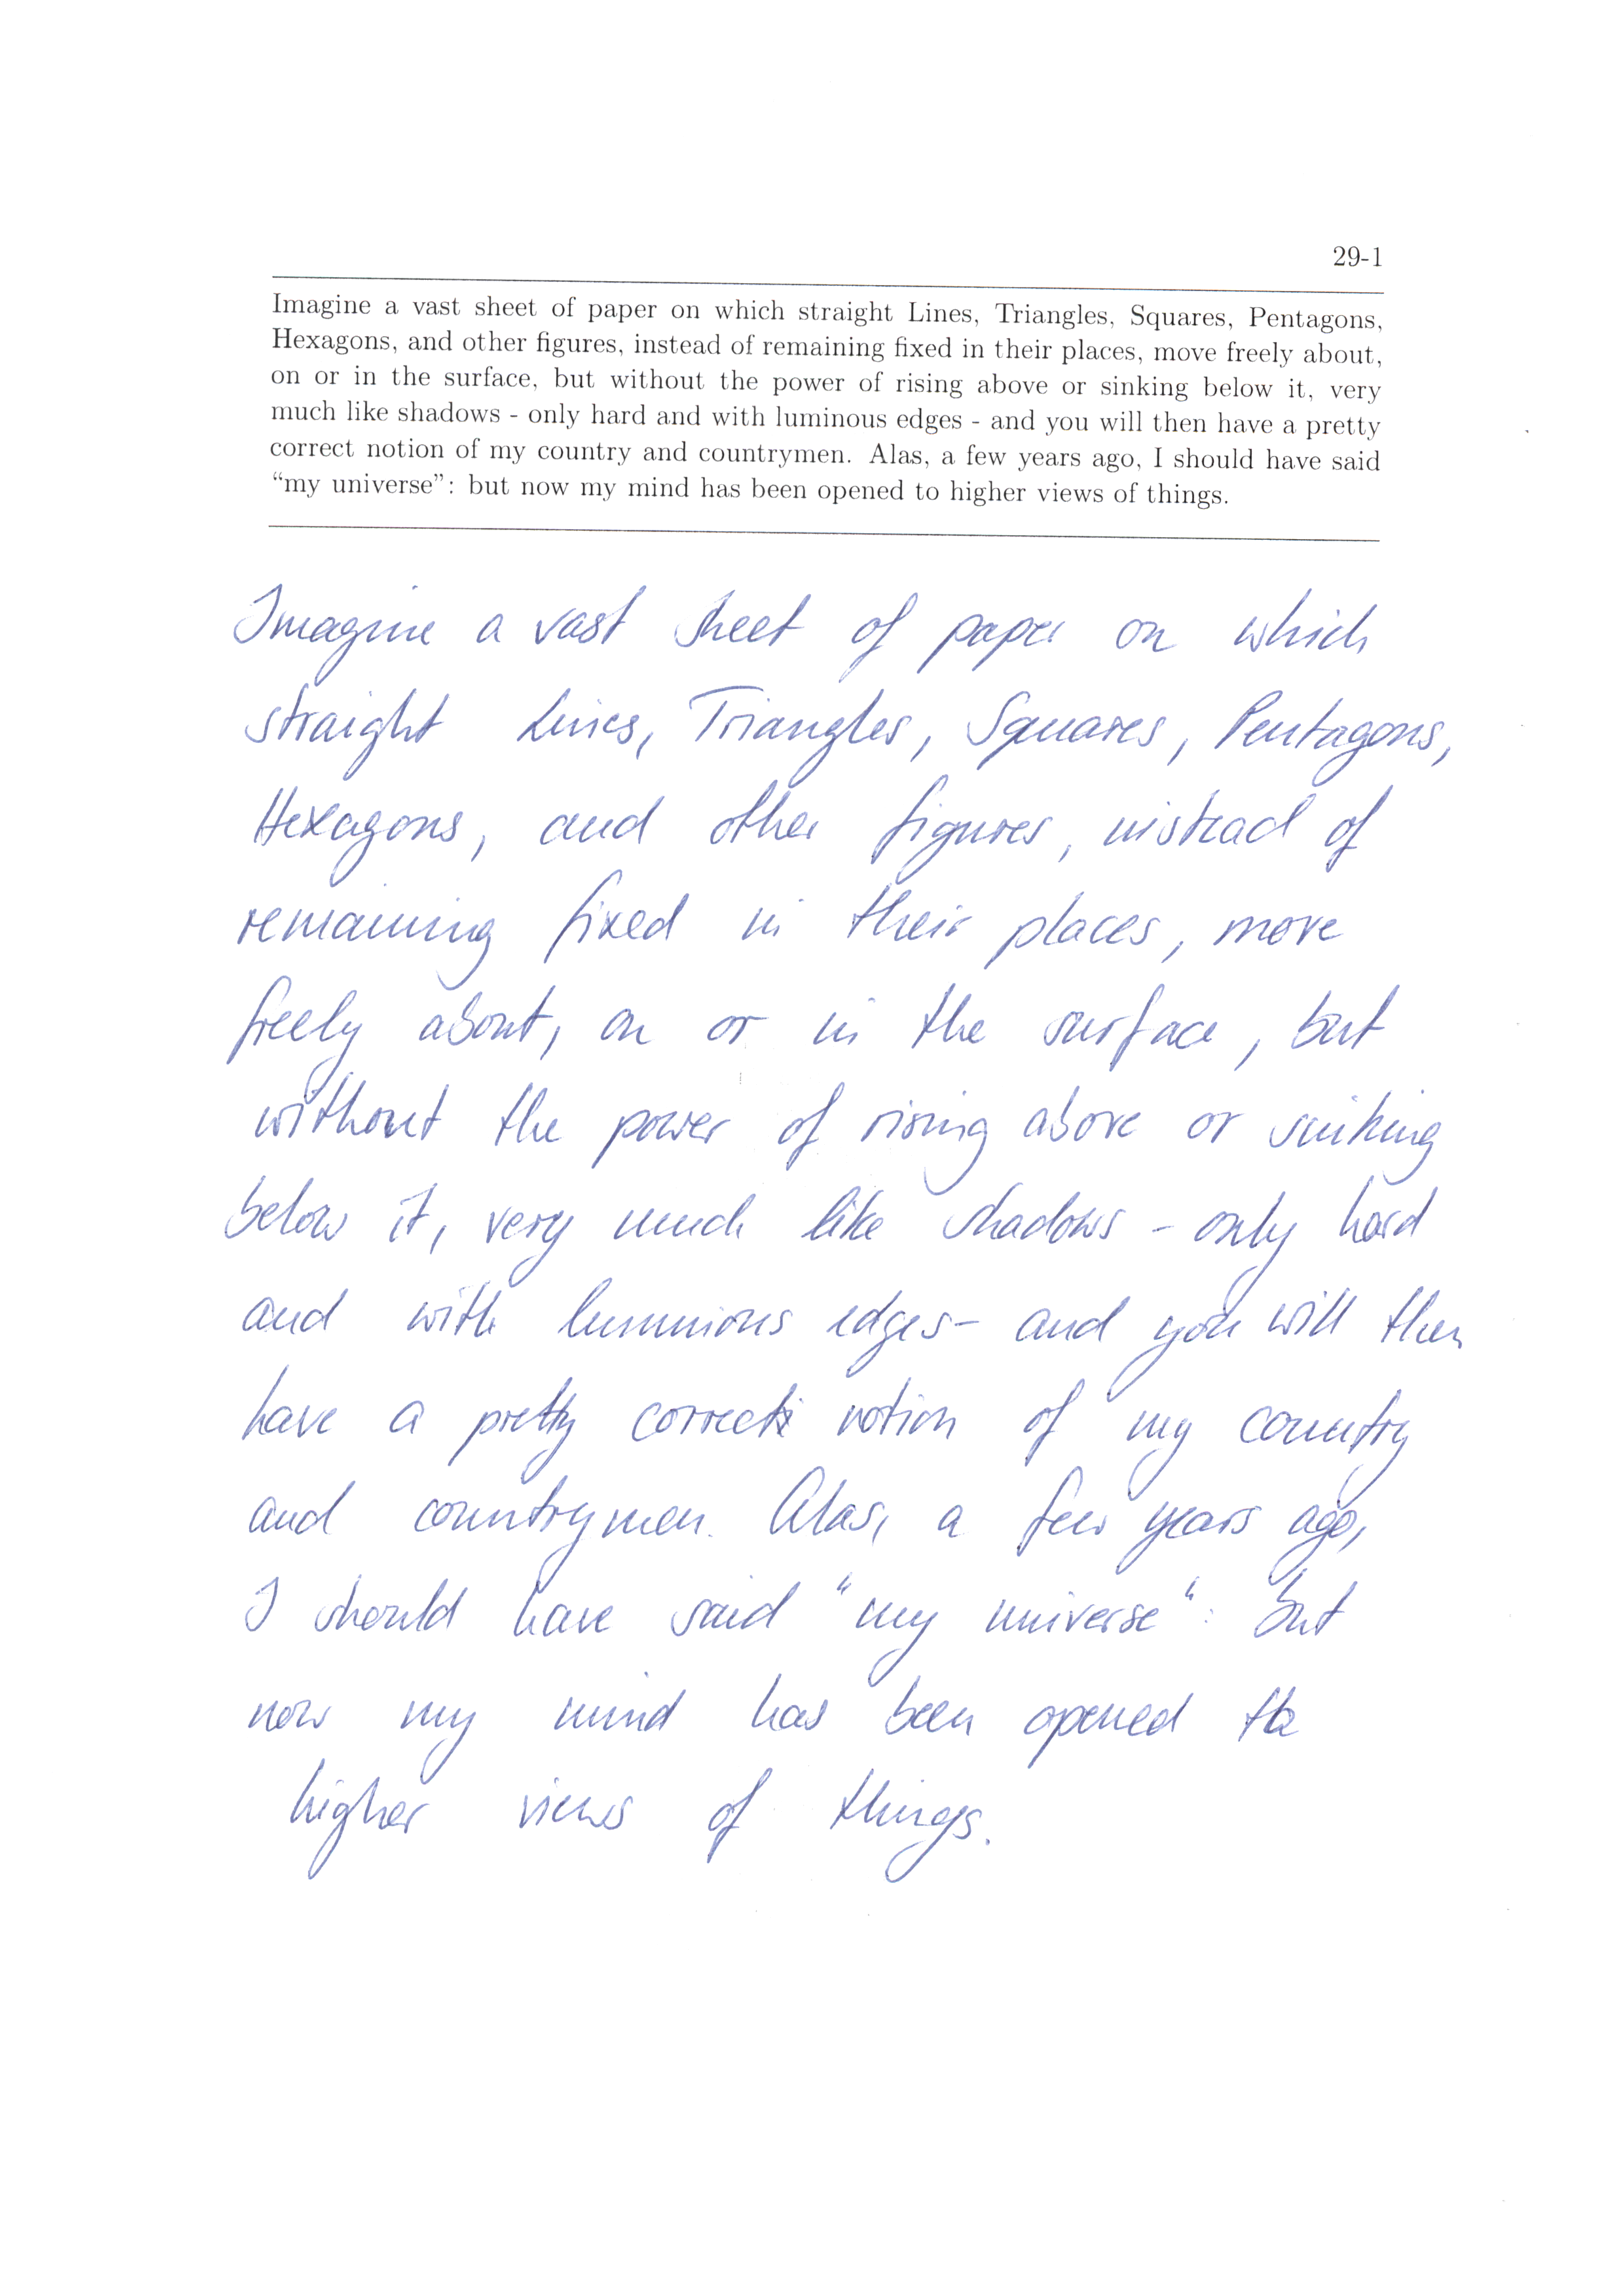 29-1
Imagine a vast sheet of paper on which straight Lines, Triangles, Squares, Pentagons,
Hexagons, and other figures, instead of remaining fixed in their places, move freely about,
on or in the surface, but without the power of rising above or sinking below it, very
much like shadows - only hard and with luminous edges - and you will then have a pretty
correct notion of my country and countrymen. Alas, a few years ago, I should have said
“my universe”: but now my mind has been opened to higher views of things.
Imagine a vast sheet of paper on which
straight Lines, Triangles, Squares, Pentagons,
Hexagons, and other figures, instead of
remaining fixed in their places, move
freely about, on or in the surface, but
without the power of rising above or sinking
below it, very much like shadows - only hard
and with luminous edges - and you will then
have a pretty correct notion of my country
and countrymen. Alas, a few years ago,
I should have said "my universe": but
now my mind has been opened to
higher views of things.